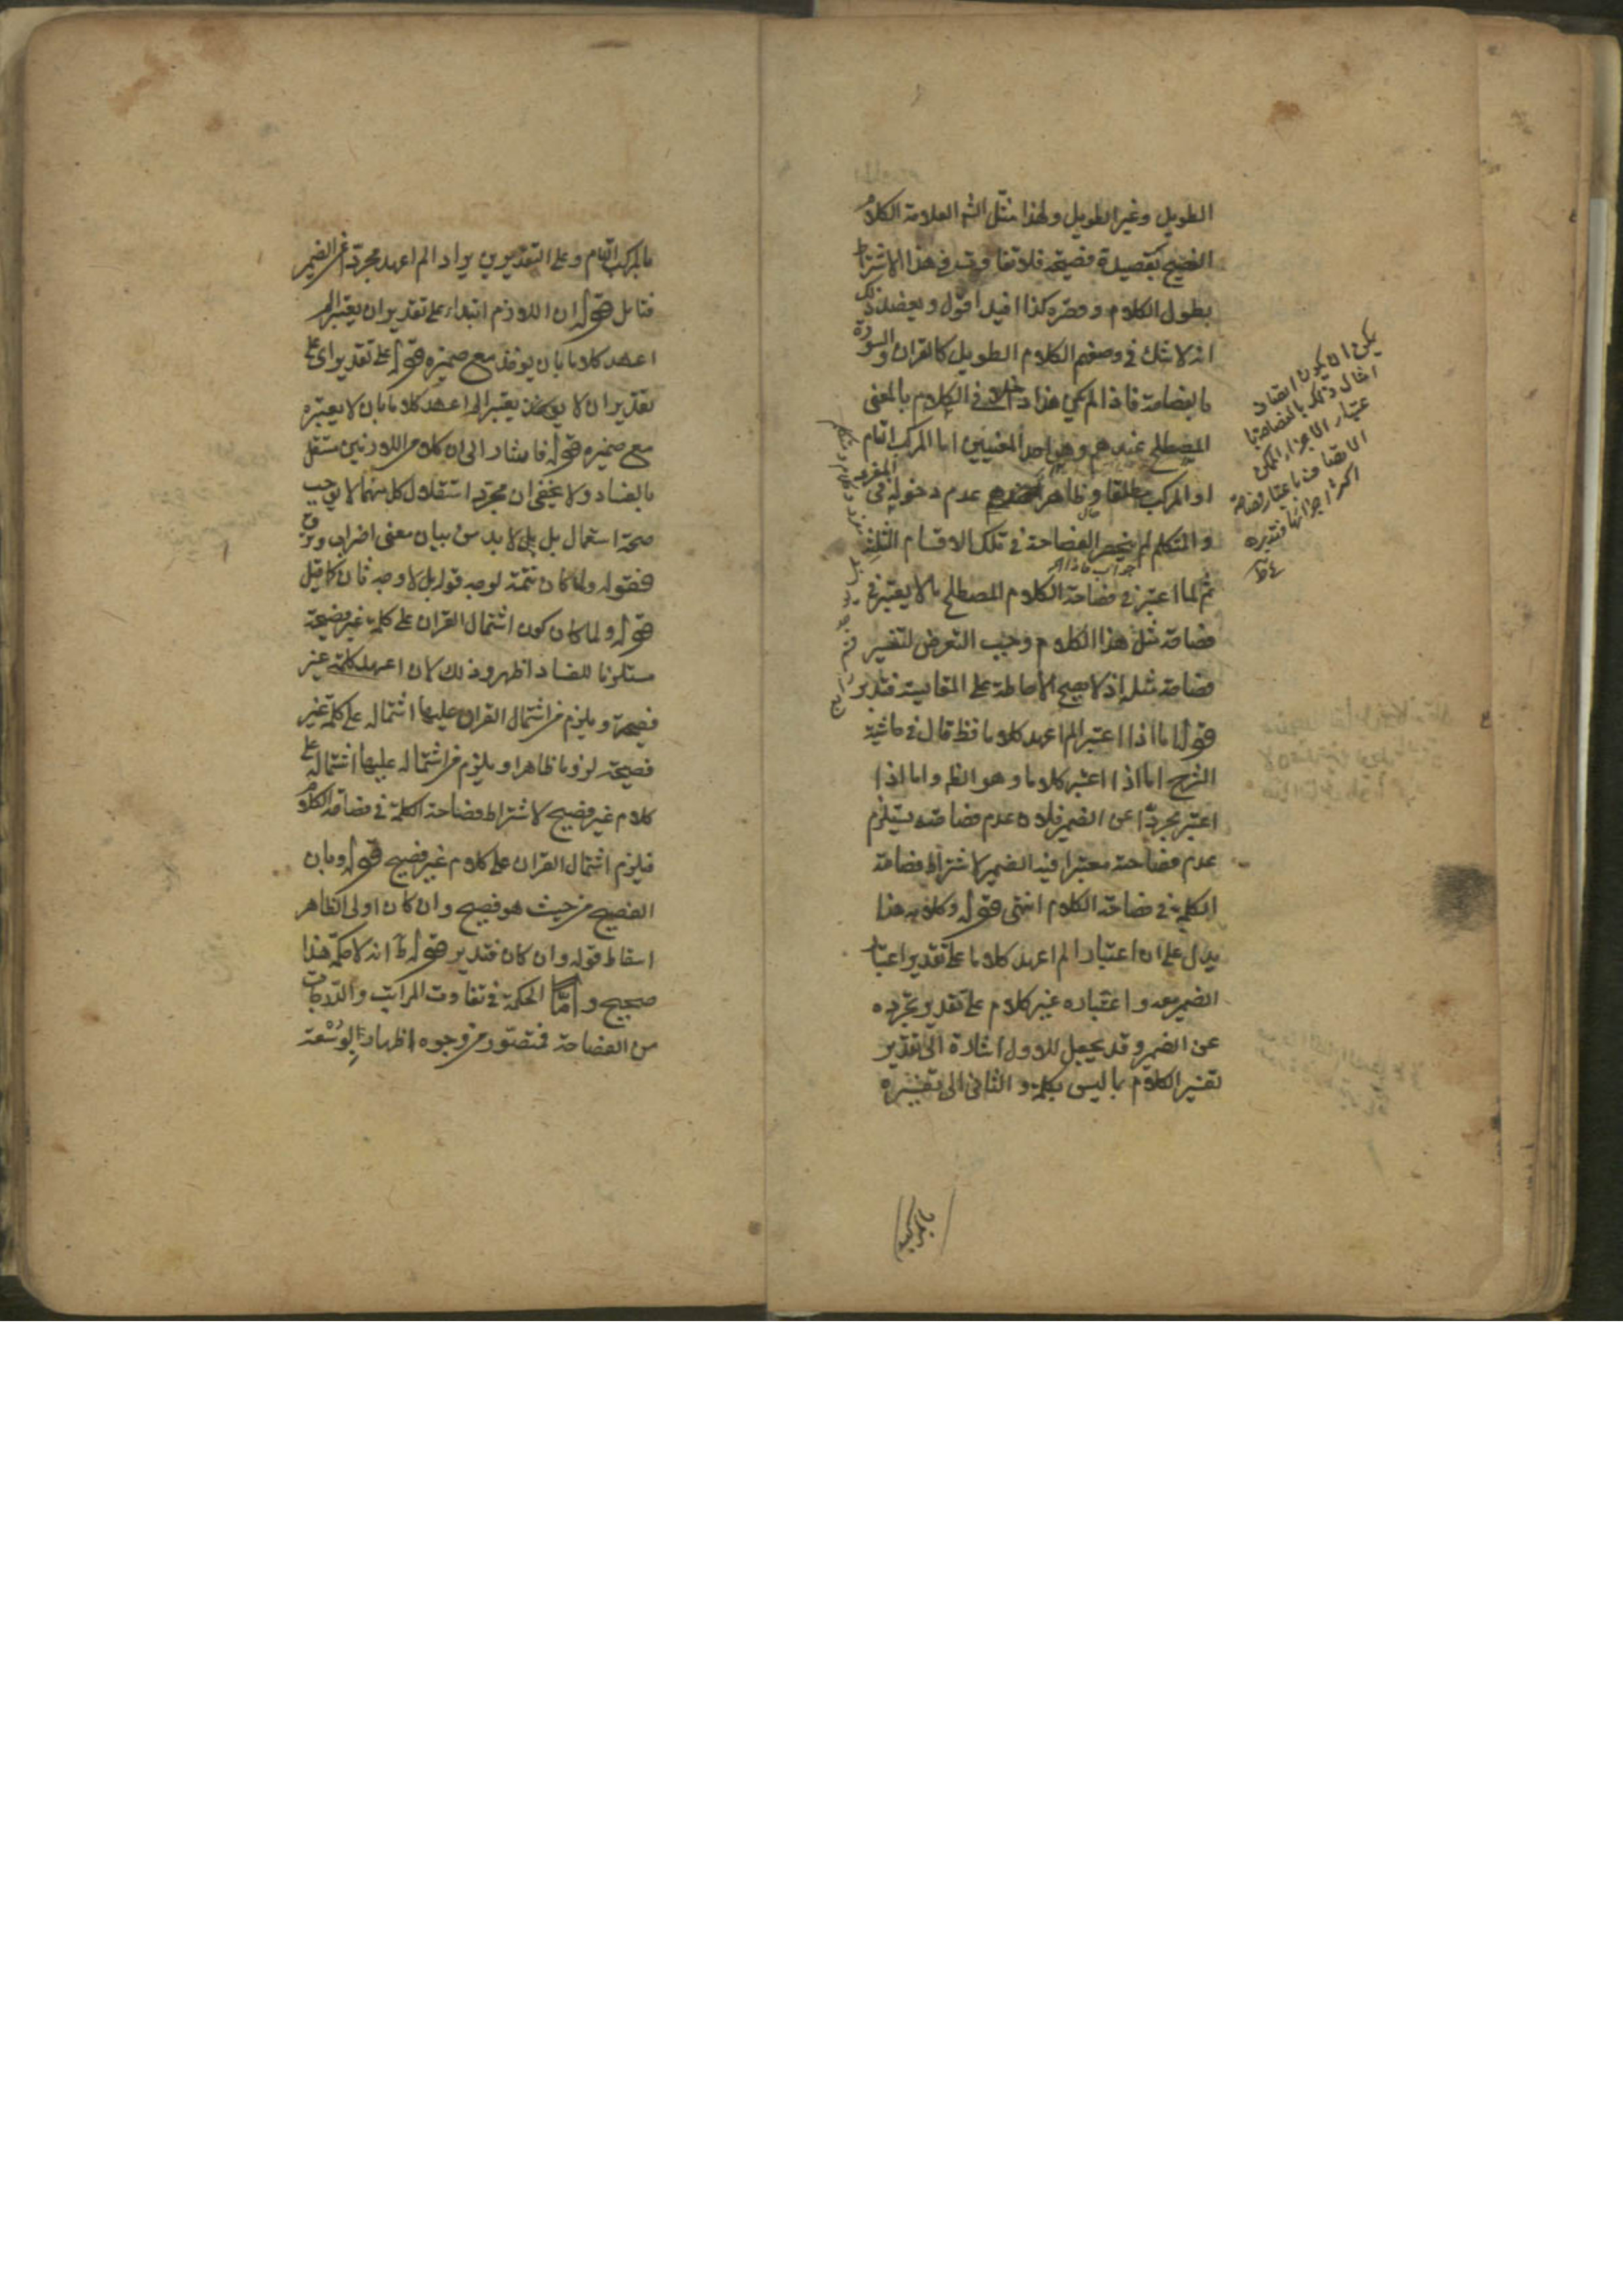 الطويل وغير الطويل ولهذا مثل الش العلامة الكلام
الفصيح بقصيدة فصيحة فلا تفاوت في هذا الاشتراط
بطول الكلام وقصره كذا افيد اقول ويعضد ذلك
انه لا شك في وصفهم الكلام الطويل كالقران والسورة
بالفصاحة فاذا لم يكن هذا داخلا في الكلام بالمعنى
المصطلح عندهم وهو احد المعنيين اما المركب التام
او المركب مطلقا وظاهر عدم دخوله في المفرد
والمتكلم لم ينحصر الفصاحة في تلك الاقسام الثلثة
ثم لما اعتبر في فصاحة الكلام المصطلح ما لا يعتبر في
فصاحة مثل هذا الكلام وجب التعرض لتفسير
فصاحة مثله اذ لا يصح الاحاطة على المقايسة فتدبر
قوله اما اذا اعتبر الم اعهد كلاما فظ قال في حاشية
الشرح اما اذا اعتبر كلاما وهو الظ واما اذا
اعتبر مجردا عن الضمير فلان عدم فصاحته يستلزم
عدم فصاحته معتبرا فيه الضمير لاشتراط فصاحة
الكلمة في فصاحة الكلام انتهى قوله وكلامه هذا
يدل على ان اعتبار الم اعهد كلاما على تقدير اعتبار
الضمير معه واعتباره غير كلام على تقدير تجرده
عن الضمير وقد يجعل الاول اشارة الى تقدير
تفسير الكلام بما ليس بكلمة والثاني الى تفسيره
يمكن ان يكون اتصاف
امثال ذلك بالفصاحة با
عتبار الاجزاء الممكن
الاتصاف باعتبار فصاحة
اكثر اجزائها فتدبره
جواب فاذا لم
بالمركب
بالمركب التام وعلى التقديرين يراد الم اعهد مجردا عن الضمير
فتامل قوله ان اللازم ابتداء على تقدير ان يعتبر الم
اعهد كلاما بان يوخذ مع ضميره قوله على تقدير اى على
تقدير ان لا يعتبر الم اعهد كلاما بان لا يعتبره
مع ضميره قوله فاشار الى ان كلا من اللازمين مستقل
بالفساد ولا يخفى ان مجرد استقلال كل منهما لا يوجب
صحة استعمال بل بل لا بد من بيان معنى اضراب وترق
فقوله ولما كان تتمة لوجه قوله بل لا وجه ثان كما قيل
قوله ولما كان كون اشتمال القران على كلمة غير فصيحة
مستلزما للفساد اظهر وذلك لان اعهد كلمة غير
فصيحة ويلزم من اشتمال القران عليها اشتماله على كلمة غير
فصيحة لزوما ظاهرا ويلزم من اشتماله عليها اشتماله على
كلام غير فصيح لاشتراط فصاحة الكلمة في فصاحة الكلام
فيلزم اشتمال القران على كلام غير فصيح قوله وبان
الفصيح من حيث هو فصيح وان كان اولى الظاهر
اسقاط قوله وان كان فتدبر قوله انه لا حكمة هذا
صحيح واما الحكمة في تفاوت المراتب والدرجات
من الفصاحة فتصور من وجوه اظهار الوسعة